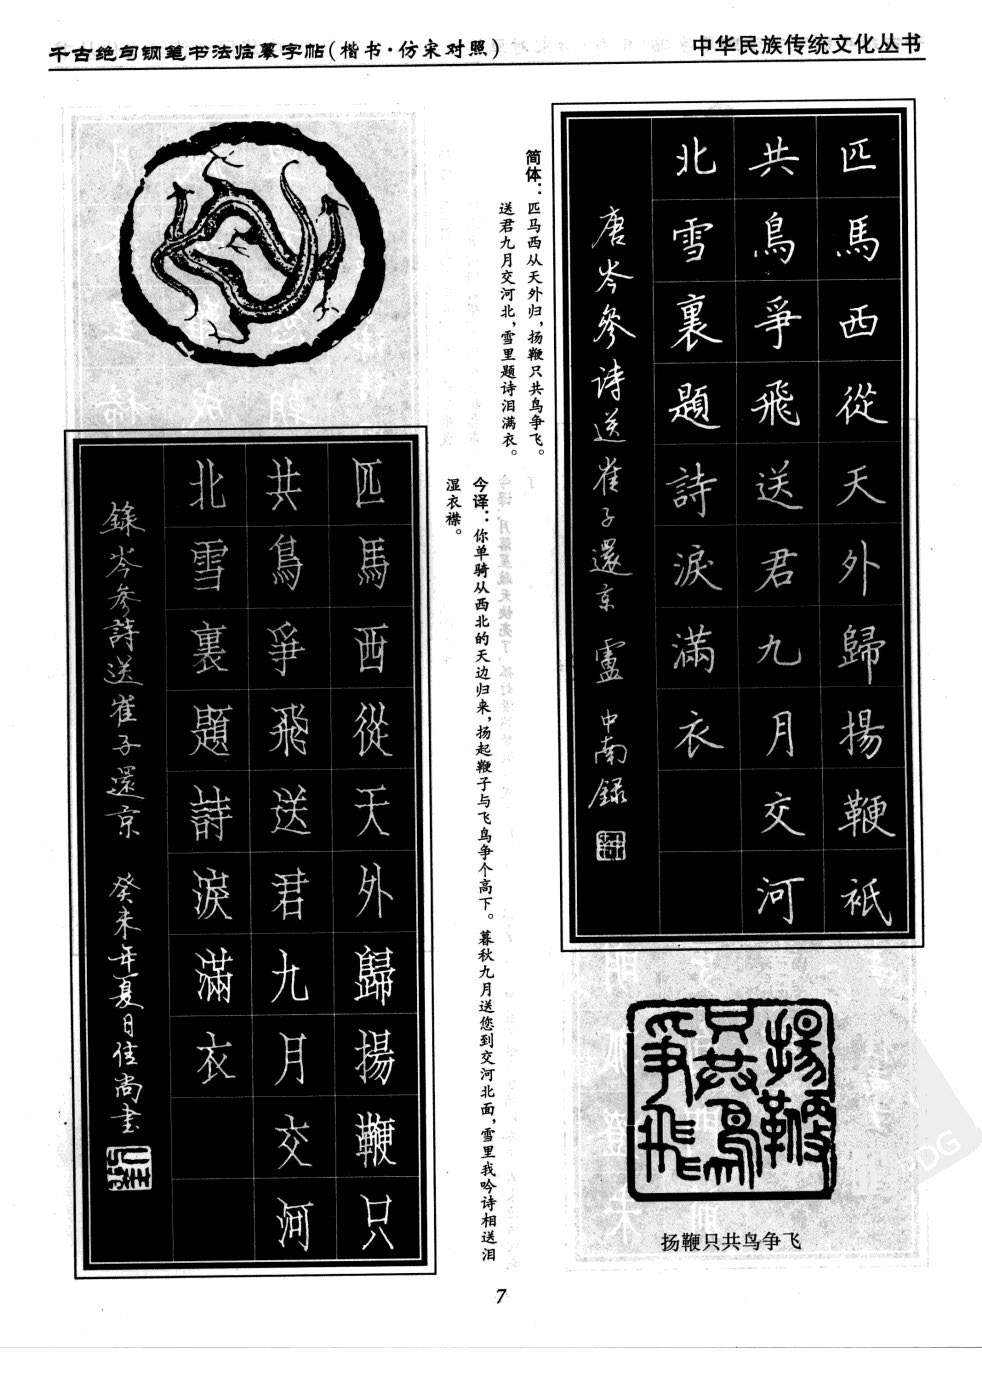 千古绝句钢笔书法临摹字帖(楷书·仿宋对照)
中华民族传统文化丛书
匹馬西從天外歸揚鞭衹
共鳥爭飛送君九月交河
北雪裏題詩淚滿衣
唐岑參诗送崔子還京 盧中南録
简体：匹马西从天外归，扬鞭只共鸟争飞。
送君九月交河北，雪里题诗泪满衣。
今译：你单骑从西北的天边归来，扬起鞭子与飞鸟争个高下。暮秋九月送您到交河北面，雪里我吟诗相送泪
湿衣襟。
匹馬西從天外歸揚鞭只
共鳥爭飛送君九月交河
北雪裏題詩淚滿衣
錄岑參詩送崔子還京 癸未年夏日佳尚書
揚鞭
只共鳥
爭飛
扬鞭只共鸟争飞
7